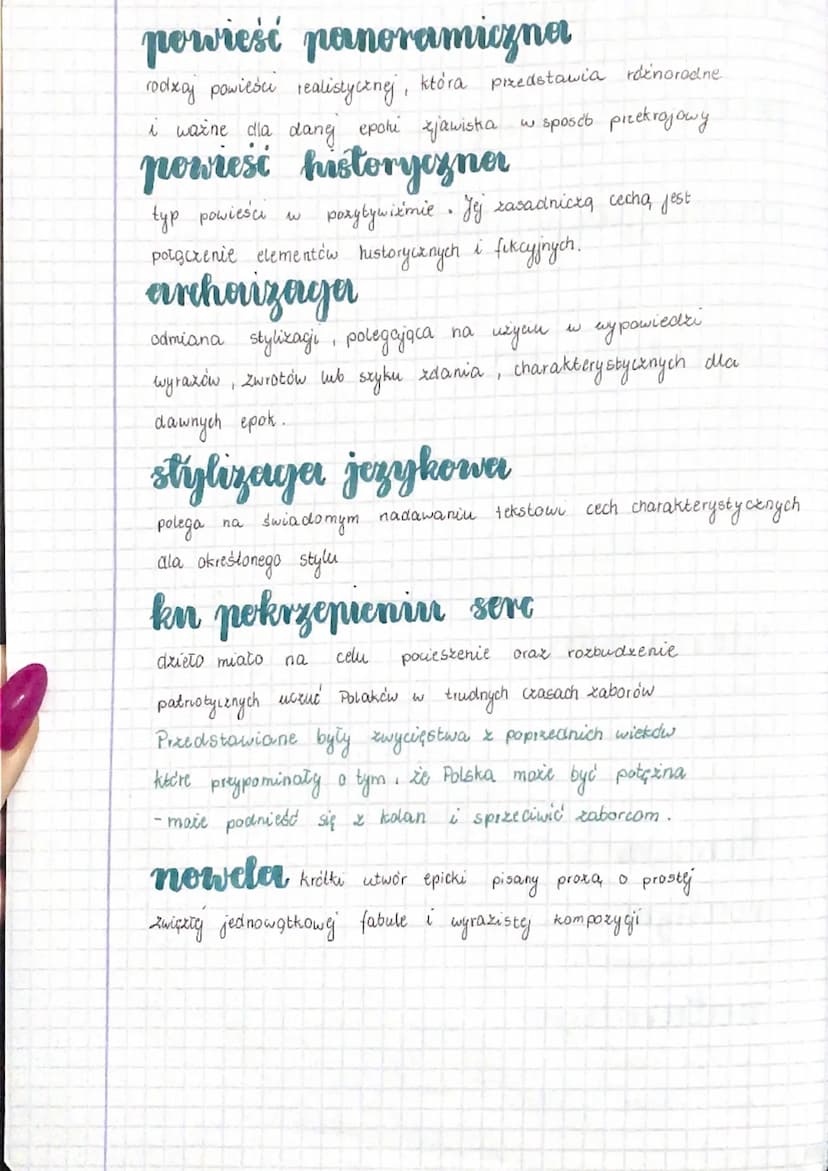 powieść panoramiczna
rodzaj powieści realistycznej, która przedstawia różnorodne
i ważne dla danej epoki zjawiska w sposób przekrojowy
powieść historyczna
typ powieści w pozytywiźmie. Jej zasadniczą cechą jest
połączenie elementów historycznych i fikcyjnych.
archaizacja
odmiana stylizacji, polegająca na użyciu w wypowiedzi
wyrazów, zwrotów lub szyku zdania, charakterystycznych dla
dawnych epok.
stylizacja językowa
polega na świadomym nadawaniu tekstowi cech charakterystycznych
dla określonego stylu
ku pokrzepieniu serc
dzieło miało na celu pocieszenie oraz rozbudzenie
patriotycznych uczuć Polaków w trudnych czasach zaborów
Przedstawiane były zwycięstwa z poprzednich wieków
które przypominały o tym, że Polska może być potężna
- może podnieść się z kolan i sprzeciwić zaborcom.
nowela krótki utwór epicki pisany prozą o prostej
zwięzłej jednowątkowej fabule i wyrazistej kompozycji